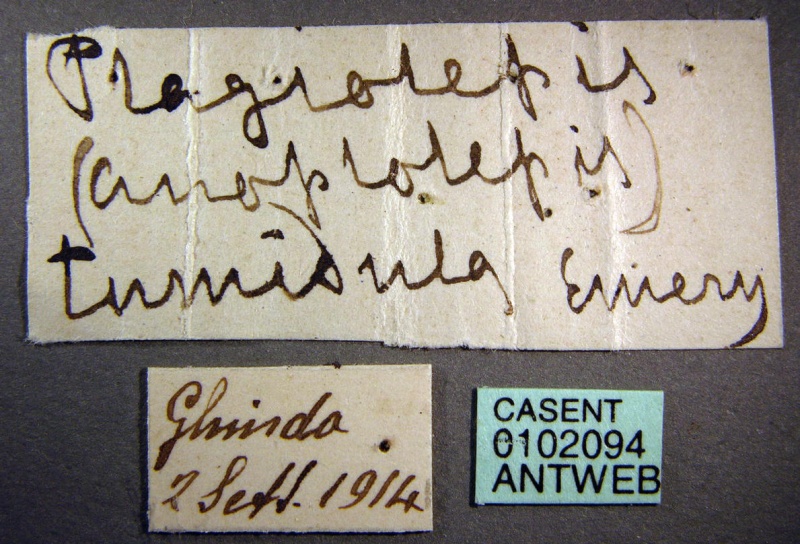 Plagiolepis
(anoplolepis)
tumidula Emery
Ghinda
2 Sett. 1914
CASENT
0102094
ANTWEB